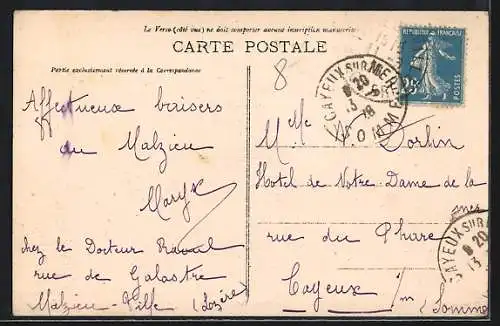 Le Verso (côté vue) ne doit comporter aucune inscription manuscrite
CARTE POSTALE
Partie exclusivement réservée à la Correspondance
8
REPUBLIQUE FRANÇAISE
25
POSTES
CAYEUX SUR MER
SOMME
Affectueux baisers
du Malzieu
Maryse
chez le Docteur
rue de Galastre
Malzieu-Ville (Lozère)
Mlle Dorlin
Hotel de Notre-Dame de la
mer
rue du Phare
Cayeux s/m (Somme
CAYEUX SUR